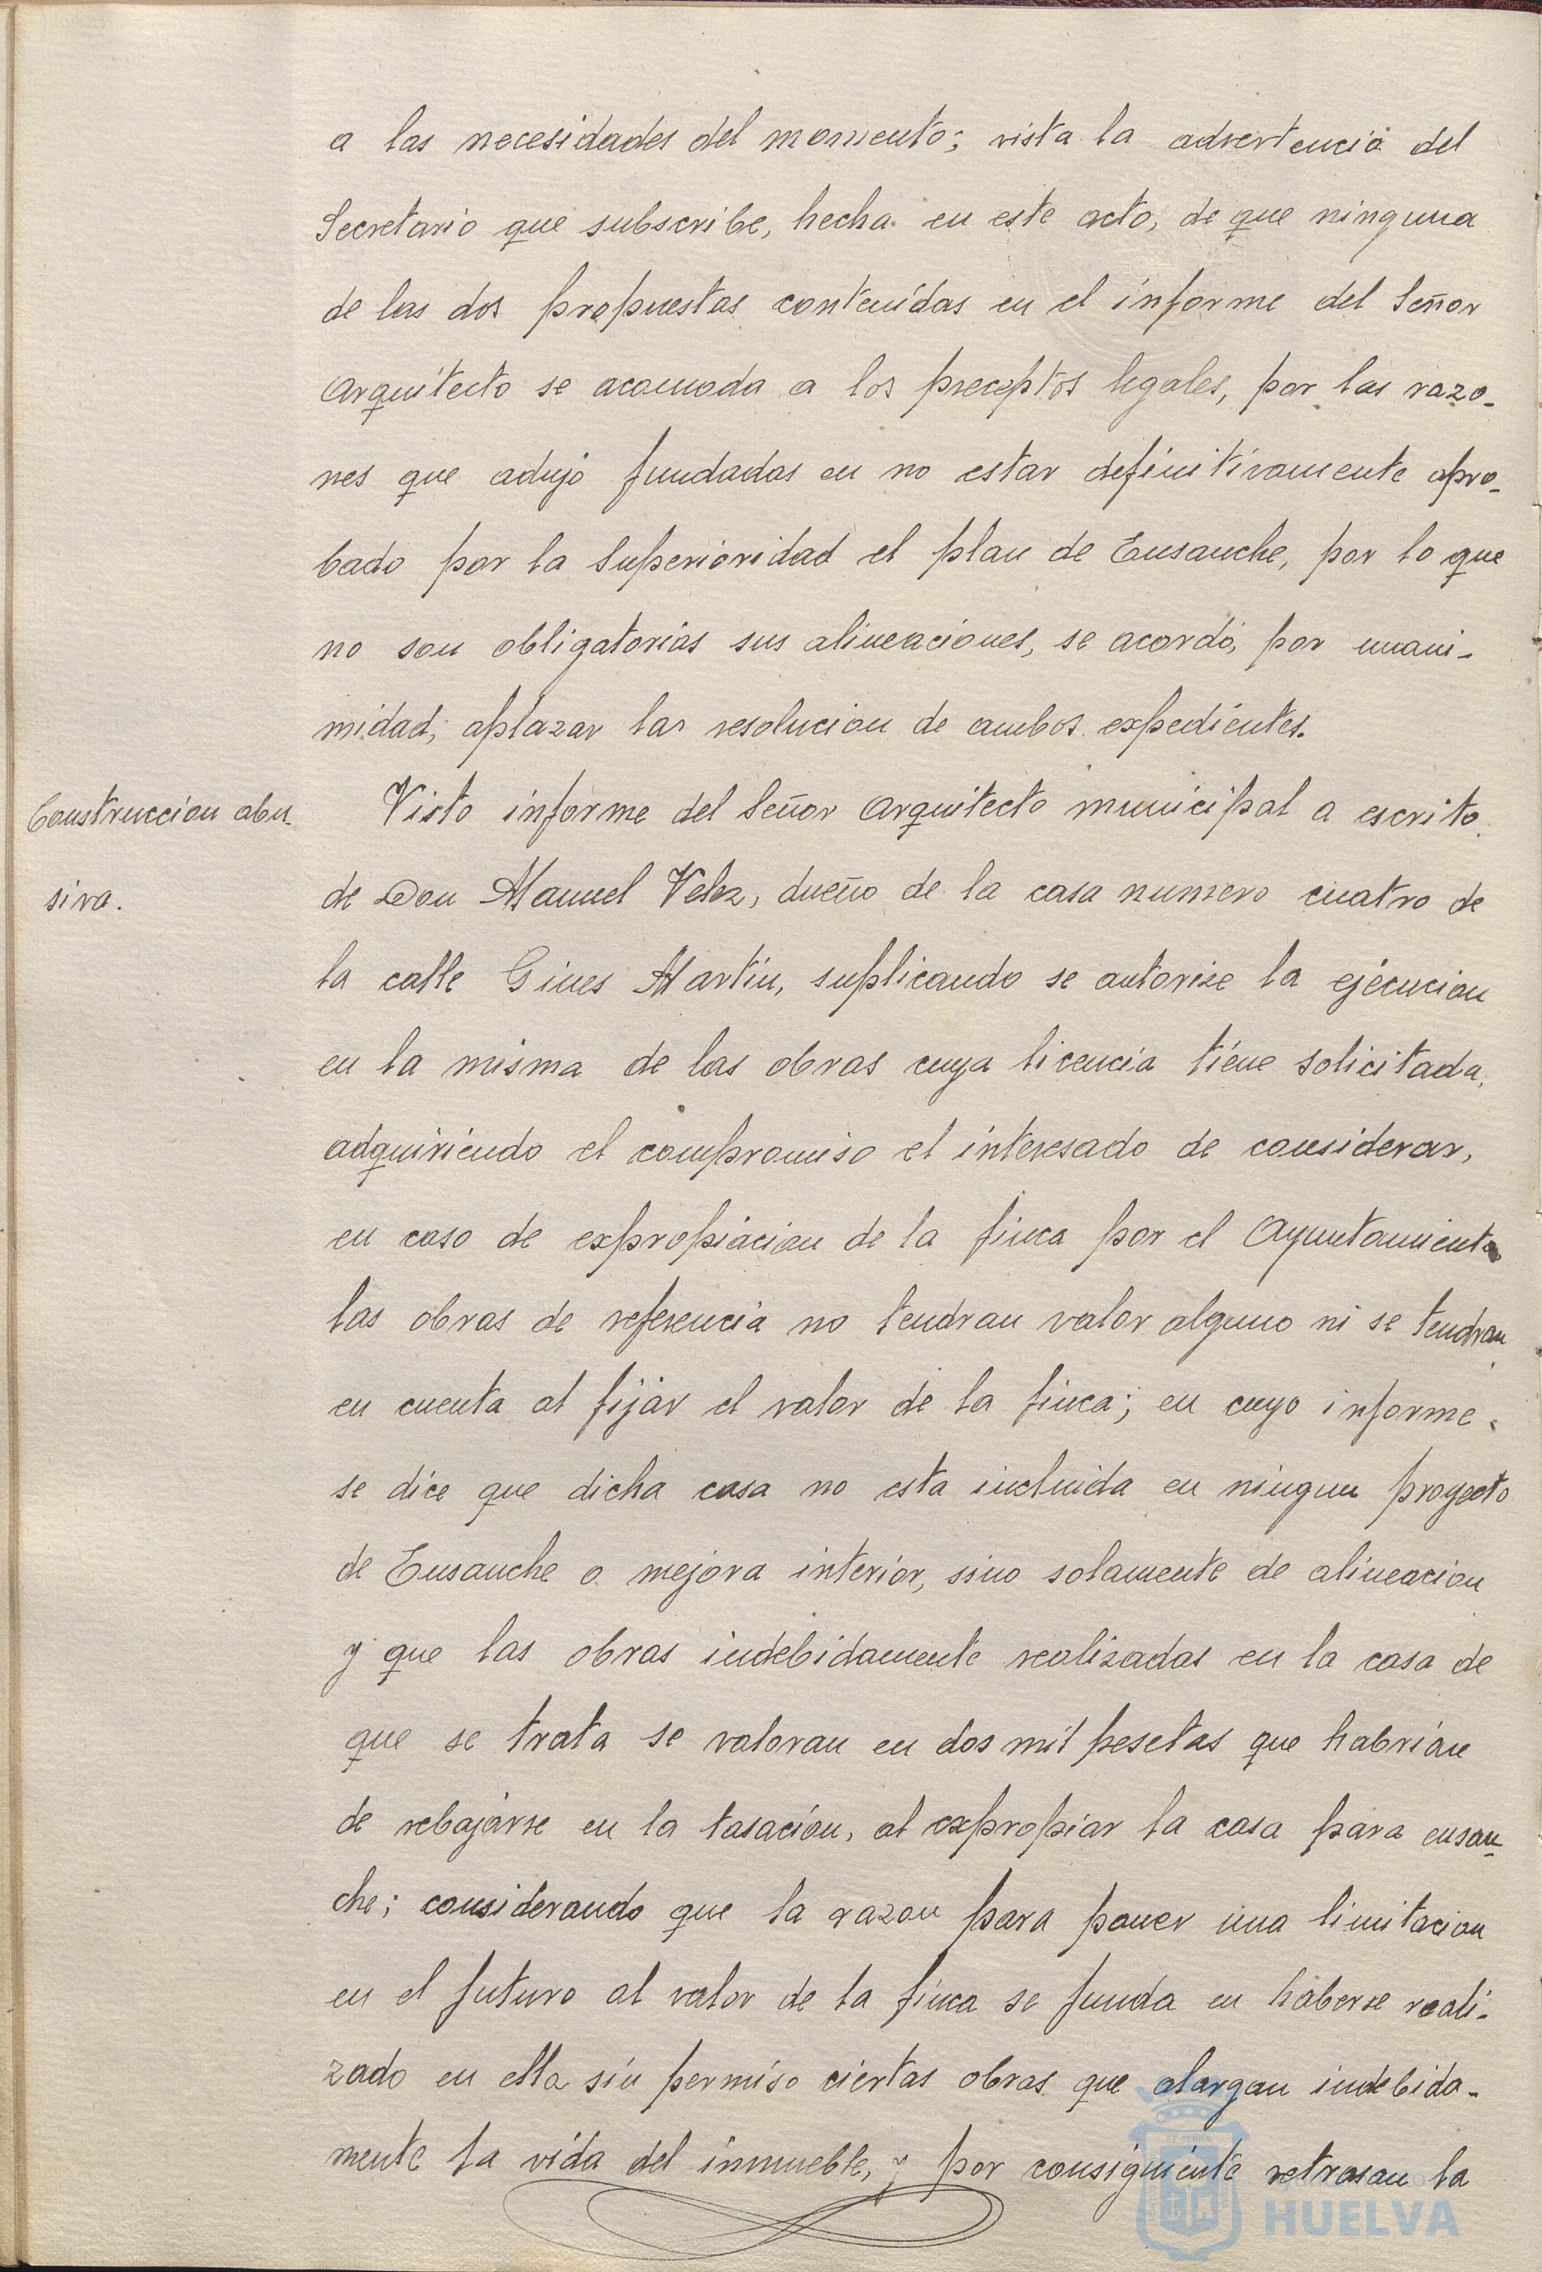 a las necesidades del momento; vista la advertencia del
Secretario que subscribe, hecha en este acto, de que ninguna
de las dos propuestas contenidas en el informe del Señor
Arquitecto se acomoda a los preceptos legales, por las razo-
nes que adujo fundadas en no estar definitivamente apro-
bado por la Superioridad el plan de Ensanche, por lo que
no son obligatorias sus alineaciones, se acordó, por unani-
midad, aplazar las resolucion de ambos expedientes.
Construccion abu-
siva.
Visto informe del Señor Arquitecto municipal a escrito
de Don Manuel Velez, dueño de la casa numero cuatro de
la calle Gines Martin, suplicando se autorize la ejecucion
en la misma de las obras cuya licencia tiene solicitada,
adquiriendo el compromiso el interesado de considerar,
en caso de expropiacion de la finca por el Ayuntamiento
las obras de referencia no tendran valor alguno ni se tendran
en cuenta al fijar el valor de la finca; en cuyo informe
se dice que dicha casa no esta incluida en ningun proyecto
de Ensanche o mejora interior, sino solamente de alineacion
y que las obras indebidamente realizadas en la casa de
que se trata se valoran en dos mil pesetas que habrian
de rebajarse en la tasacion, al expropiar la casa para ensan-
che; considerando que la razon para poner una limitacion
en el futuro al valor de la finca se funda en haberse reali-
zado en ella sin permiso ciertas obras que alargan indebida-
mente la vida del inmueble, y por consiguiente retrasan la
HUELVA